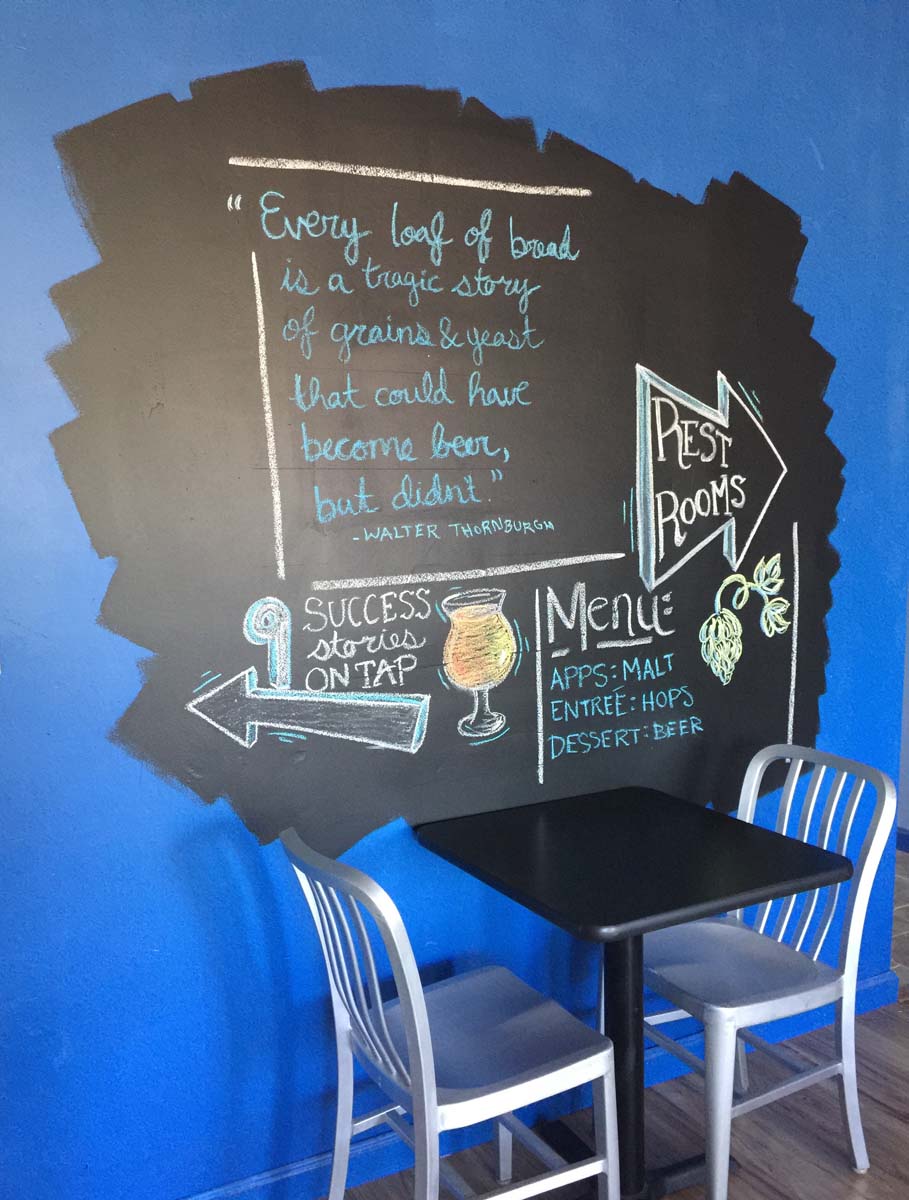 “Every loaf of bread
is a tragic story
of grains & yeast
that could have
become beer,
but didn't.”
-WALTER THORNBURGH
REST
ROOMS
9 SUCCESS
stories
ON TAP
Menu:
APPS: MALT
ENTREÉ: HOPS
DESSERT: BEER